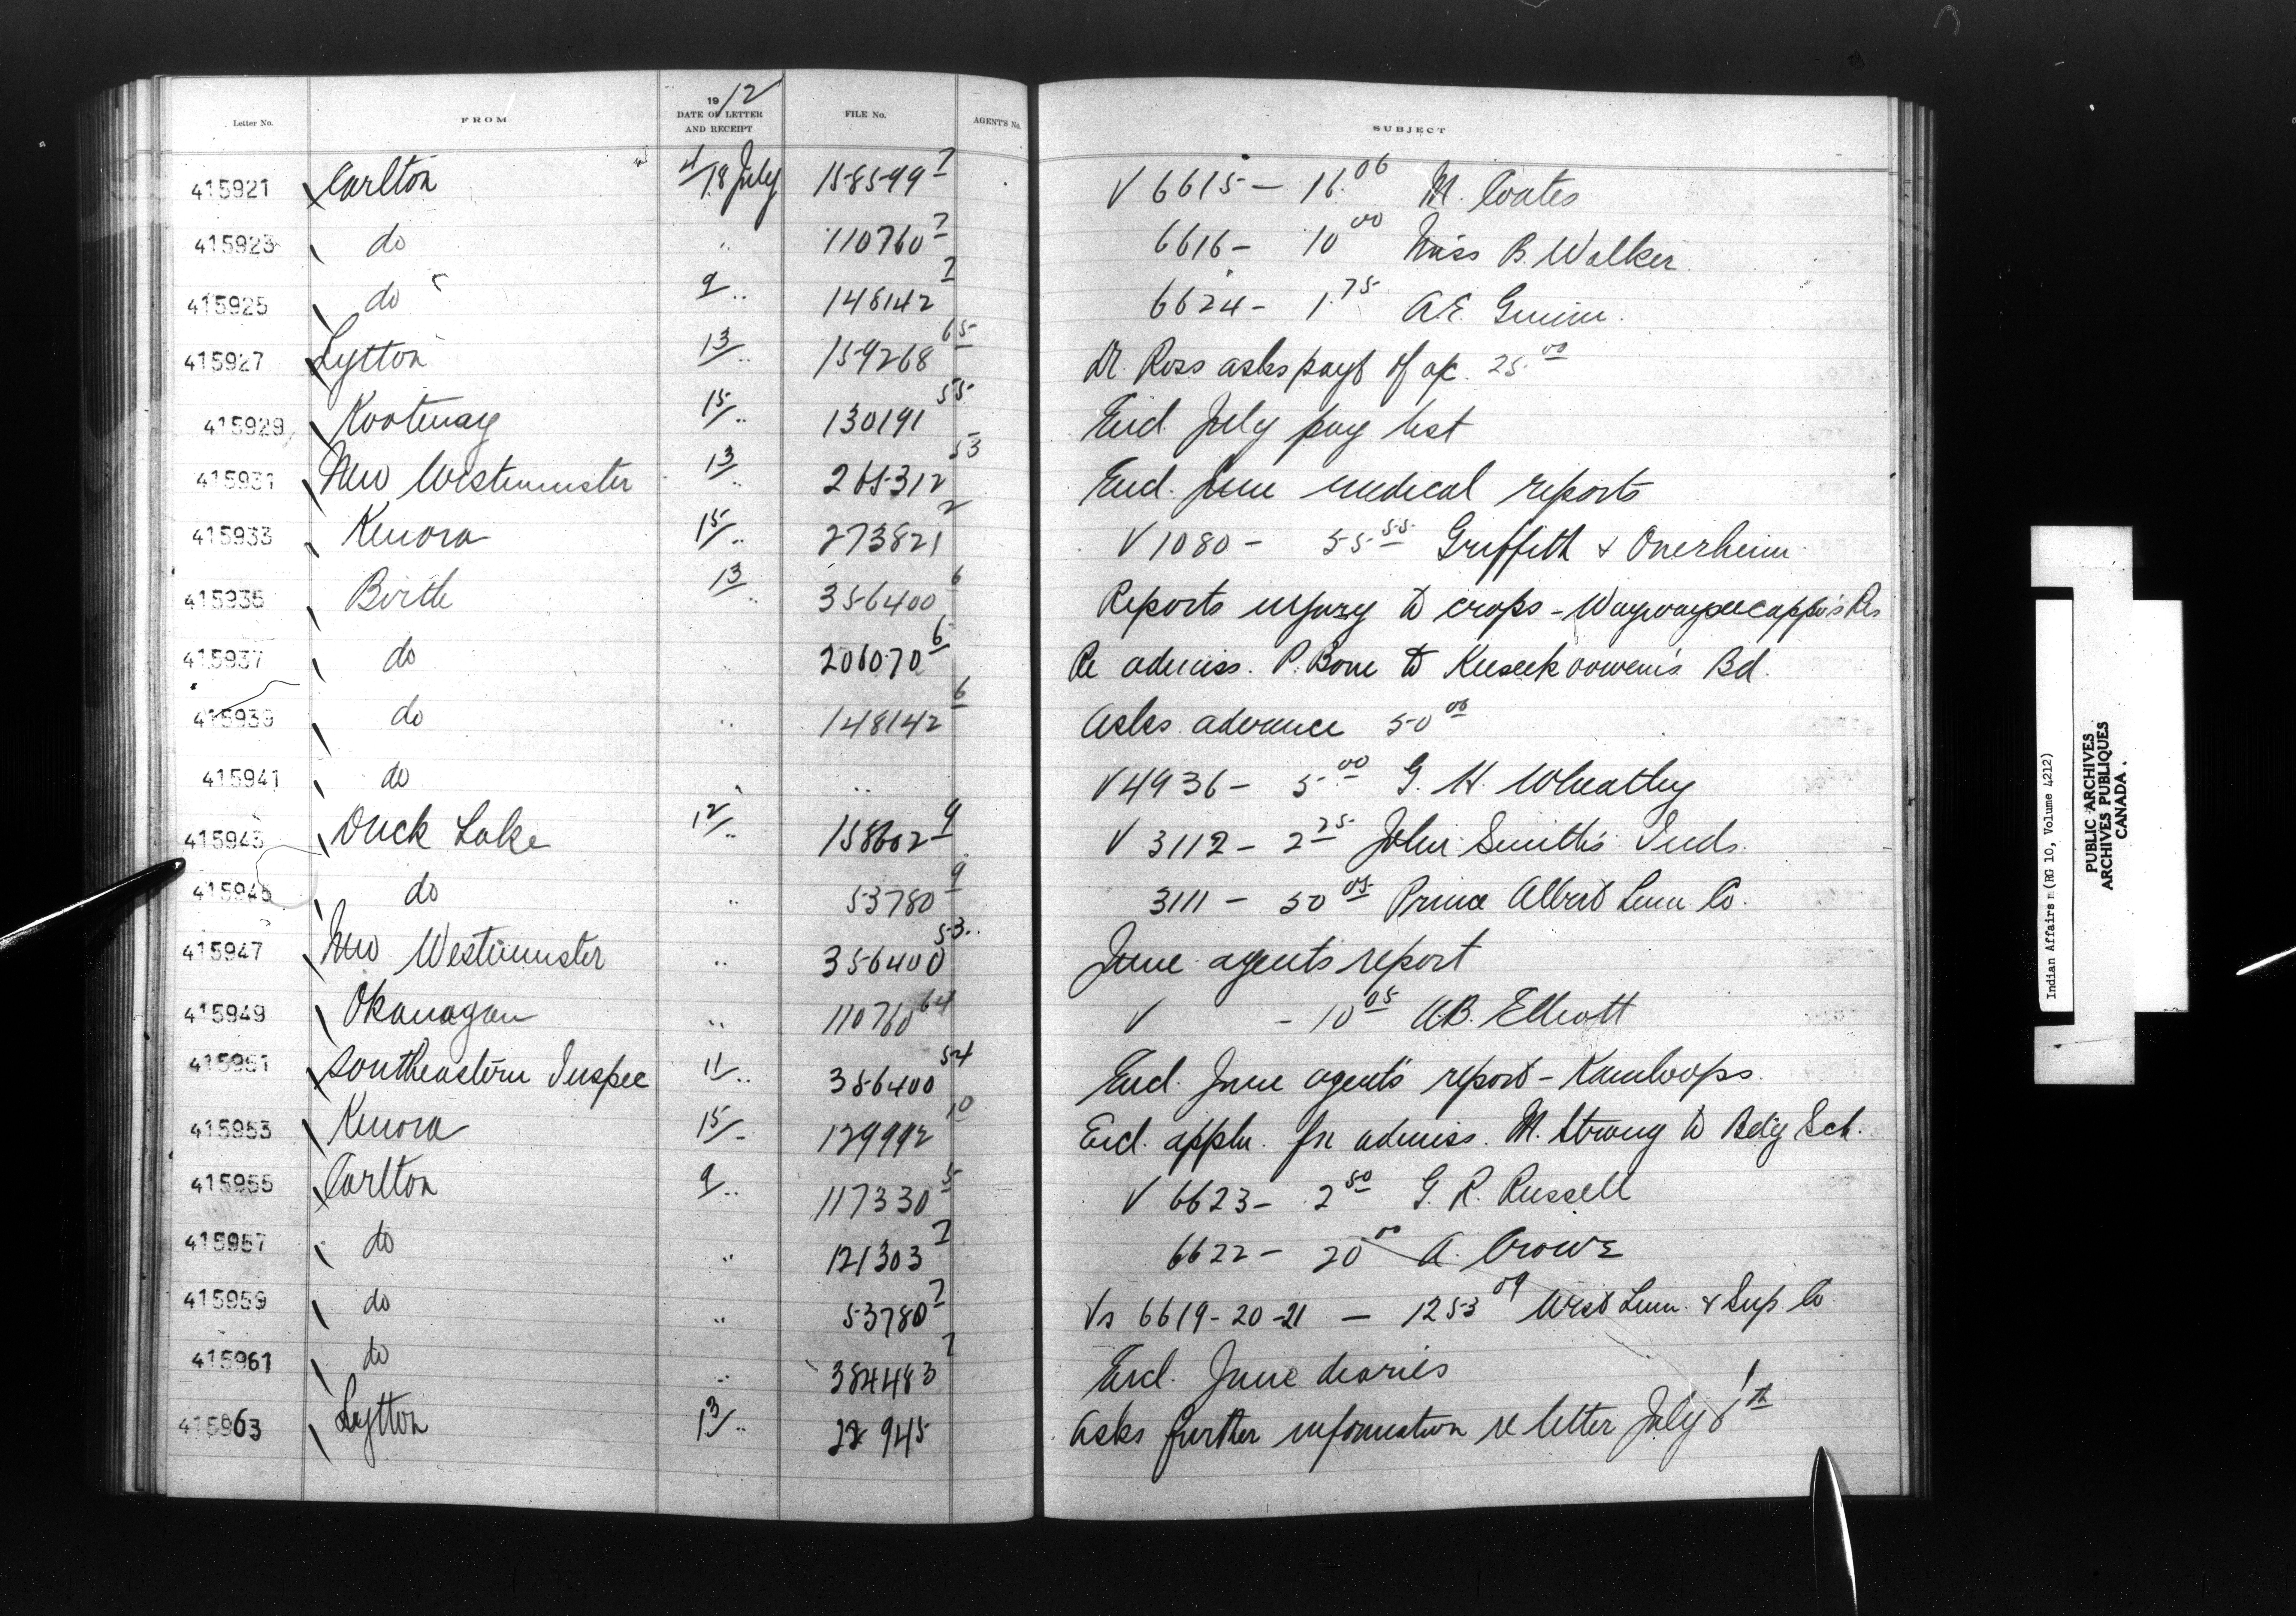 1912
Letter No. FROM DATE OF LETTER AND RECEIPT FILE No. AGENT'S No. SUBJECT
415921 Carlton 4/18 July 158599 7 V 6615 - 16.06 M. Coates
415923 do " 110760 7 6616 - 10 00 Miss B. Walker
415925 do 9 " 148142 7 6624 - 1.75 A.E.
415927 Lytton 13/ " 159268 65 Dr. Ross asks payt of a/c. 25 00
415929 Kootenay 15/ " 130191 55 Encl. July pay list
415931 New Westminster 13 " 265312 53 Encl. June medical reports
415933 Kenora 15/ " 273821 2 V 1080 - 55 55 Griffith & Onerheim
415935 Birtle 13/ " 356400 6 Reports injury to crops - Waywayseecappo's Res
415937 do " 206070 6 Re admiss. P. Bone to Keeseekoowenin's Bd.
415939 do " 148142 6 Asks advance 50 00
415941 do " " V 4936 - 5 00 G. H. Wheatley
415943 Duck Lake 12/ " 158602 9 V 3112 - 2 25 John Smith's Inds.
415945 do " 53780 9 3111 - 50 05 Prince Albert Lum Co.
415947 New Westminster " 356400 53 June agents report
415949 Okanagan " 110760 64 V - 10 05 A.B. Elliott
415951 Southeastern Inspec 11/ " 356400 54 Encl. June agents report - Kamloops.
415953 Kenora 15/ " 129992 10 Encl. appln. for admiss. M. Strong to Bdg Sch.
415955 Carlton 9/ " 117330 5 V 6623 - 2 50 G. R. Russell
415957 do " 121303 7 6622 - 20 00 A. Crowe
415959 do " 53780 7 Vs 6619-20-21 - 1253 09 West Lum. & Sup. Co
415961 do " 384483 7 Encl. June diaries
415963 Lytton 13/ " 22945 Asks further information re letter July
Indian Affairs (RG 10, Volume 4212)
PUBLIC ARCHIVES
ARCHIVES PUBLIQUES
CANADA